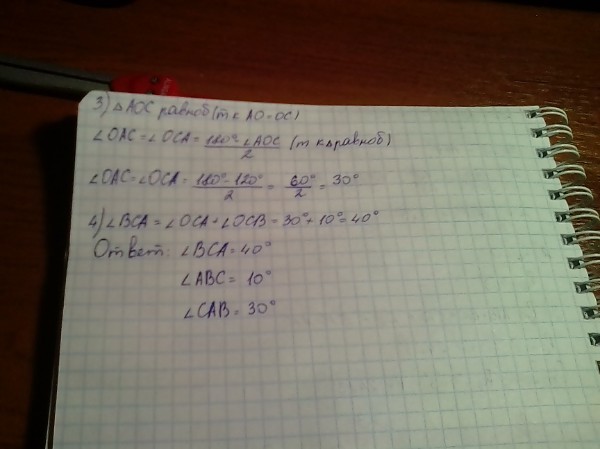 3) △AOC равноб (т к AO=OC)
∠OAC=∠OCA= (180°-∠AOC)/2 (т к △равноб)
∠OAC=∠OCA= (180°-120°)/2 = 60°/2 = 30°
4) ∠BCA = ∠OCA+∠OCB=30°+10°=40°
Ответ: ∠BCA=40°
∠ABC= 10°
∠CAB= 30°